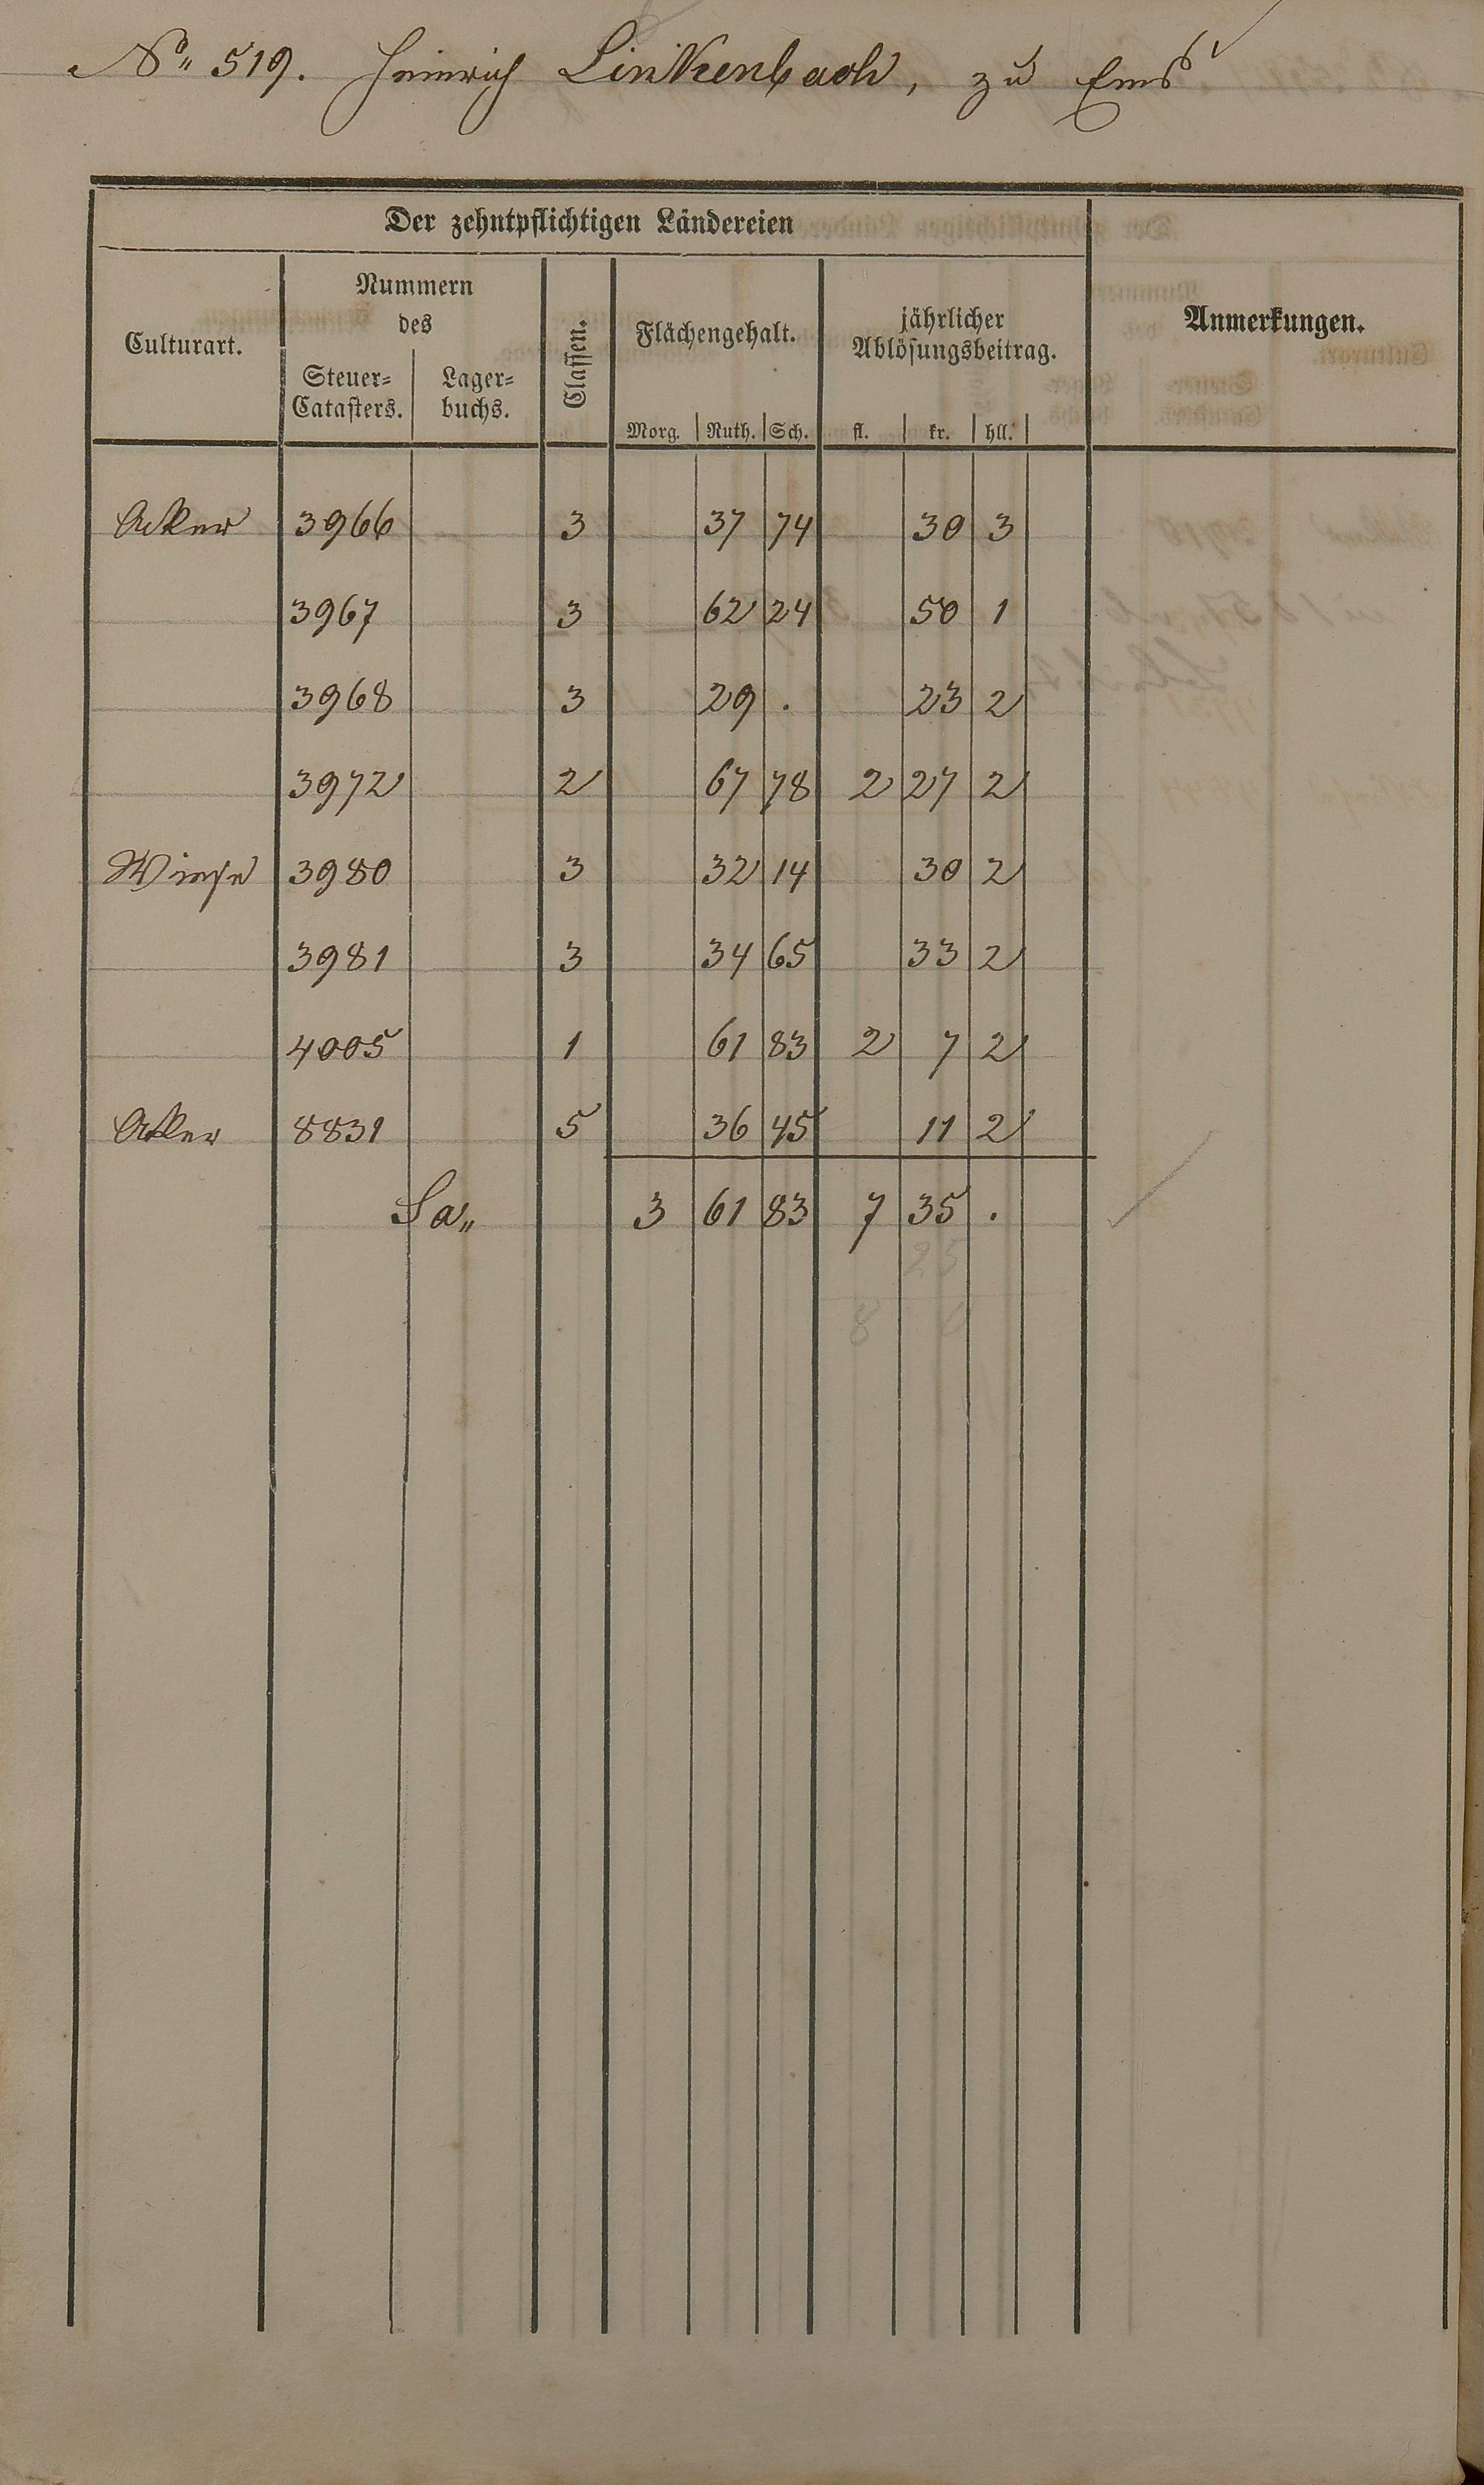 No 519. Heinrich Linkenbach, zu Ems
Der zehntpflichtigen Ländereien
Culturart.
Nummern
des
Steuer=
Catasters.
Lager=
buchs.
Classen.
Flächengehalt.
Morg. Ruth. Sch.
jährlicher
Ablösungsbeitrag.
fl. kr. hll.
Anmerkungen.
Acker 3966 3 37 74 30 3
3967 3 62 24 50 1
3968 3 29 . 23 2
3972 2 67 78 2 27 2
Wiese 3980 3 32 14 30 2
3981 3 34 65 33 2
4005 1 61 83 2 7 2
Acker 8831 5 36 45 11 2
Sa„ 3 61 83 7 35 .
25
8